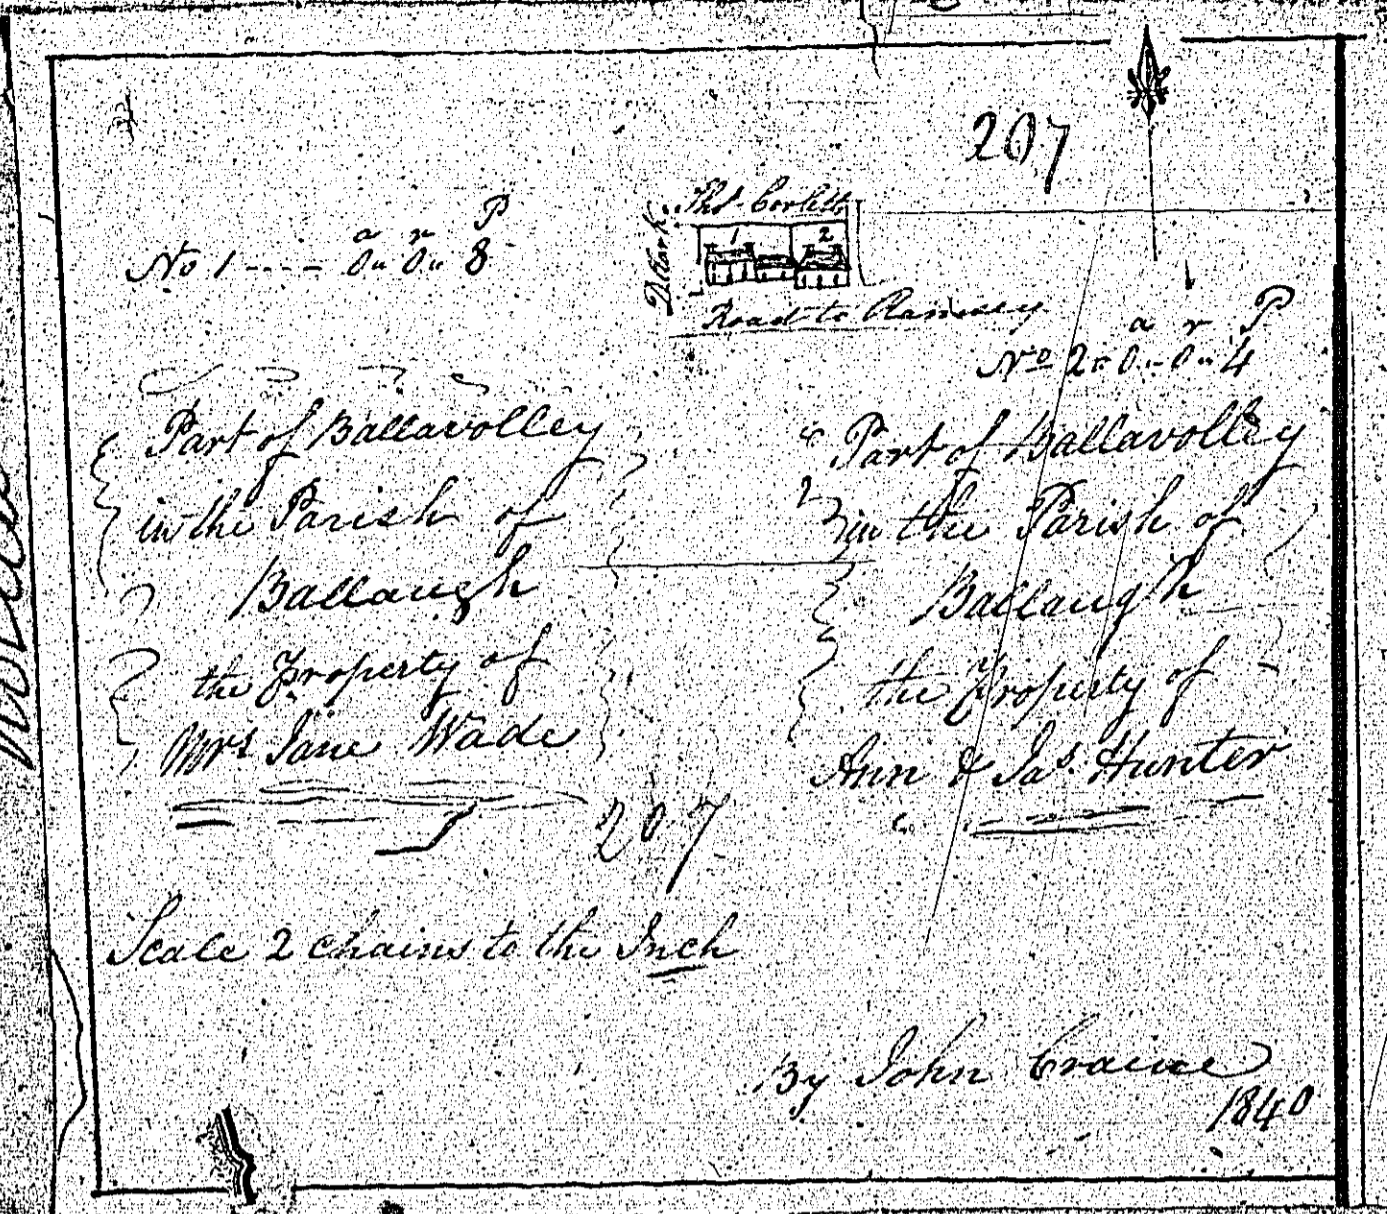 207
Thos. Corlett
a r P
No 1 ---- 0 " 0 " 8
1 2
D. Clark
Road to Ramsey
a r P
No 2 " 0 " 0 " 4
Part of Ballavolley
in the Parish of
Ballaugh
the Property of
Mrs Jane Wade
Part of Ballavolley
in the Parish of
Ballaugh
the Property of
Ann & Jas. Hunter
207
Scale 2 chains to the Inch
By John Craine
1840